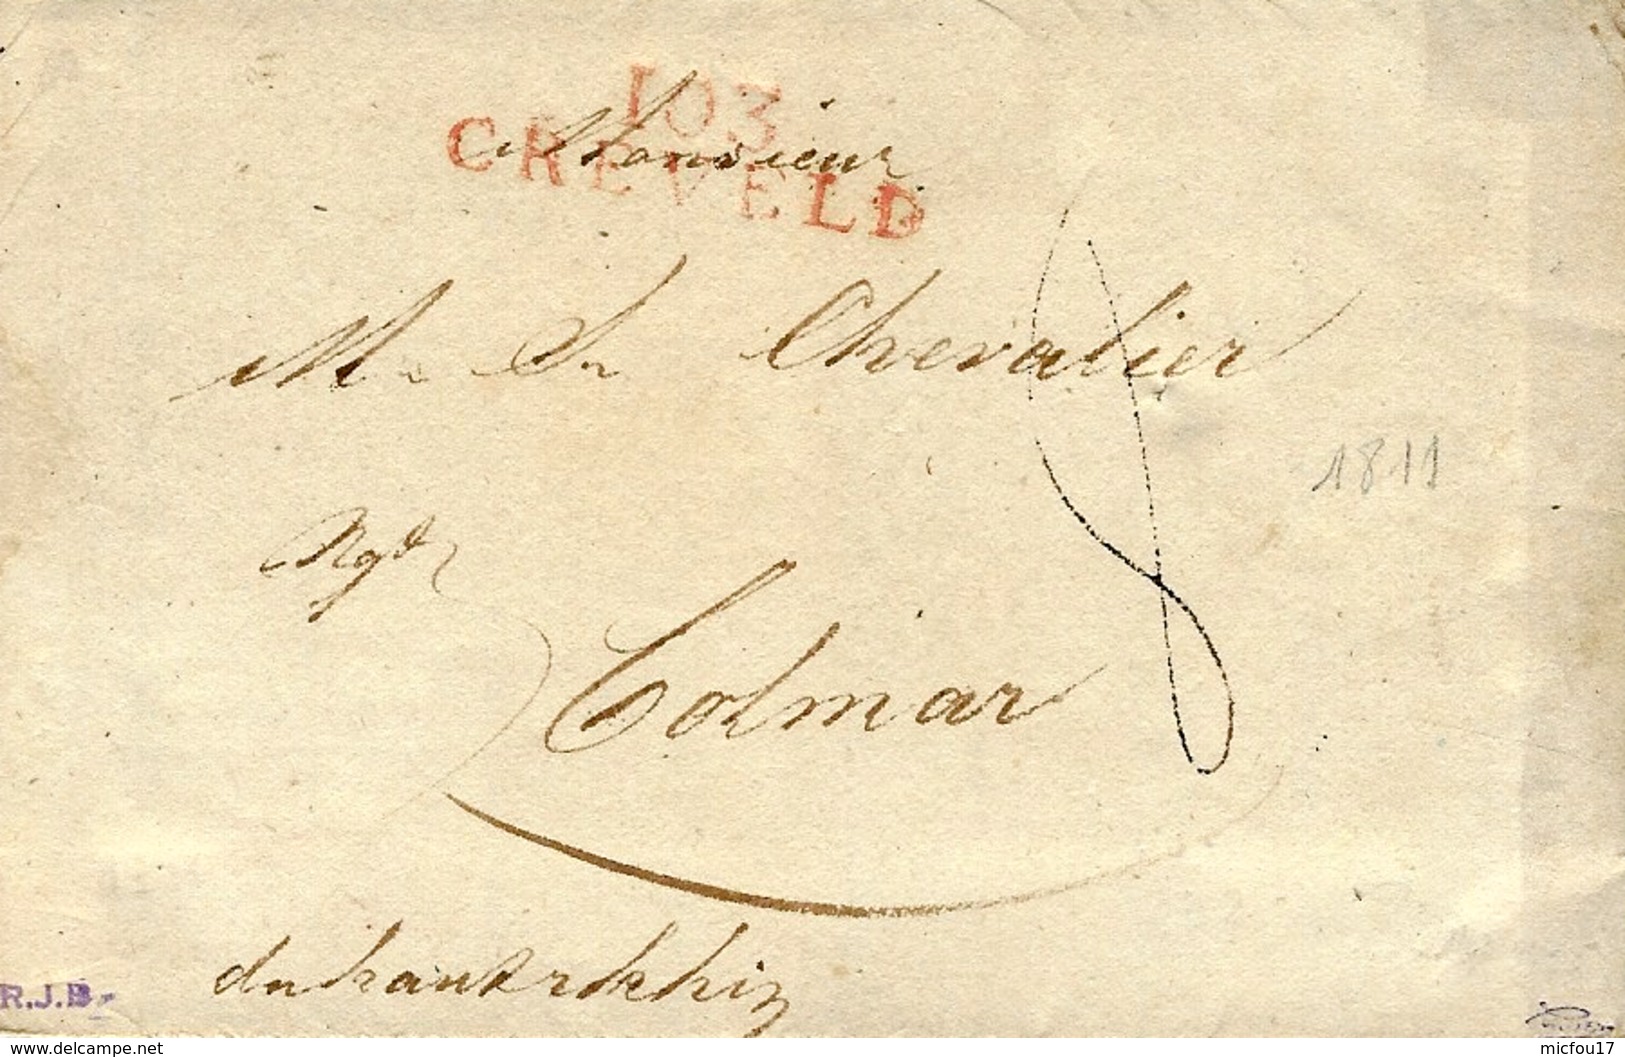 103
CREVELD
Monsieur
M. Sn Chevalier
1811
Ngt
Colmar
8
du haut rhhin
R.J.B.
www.delcampe.net
micfou17